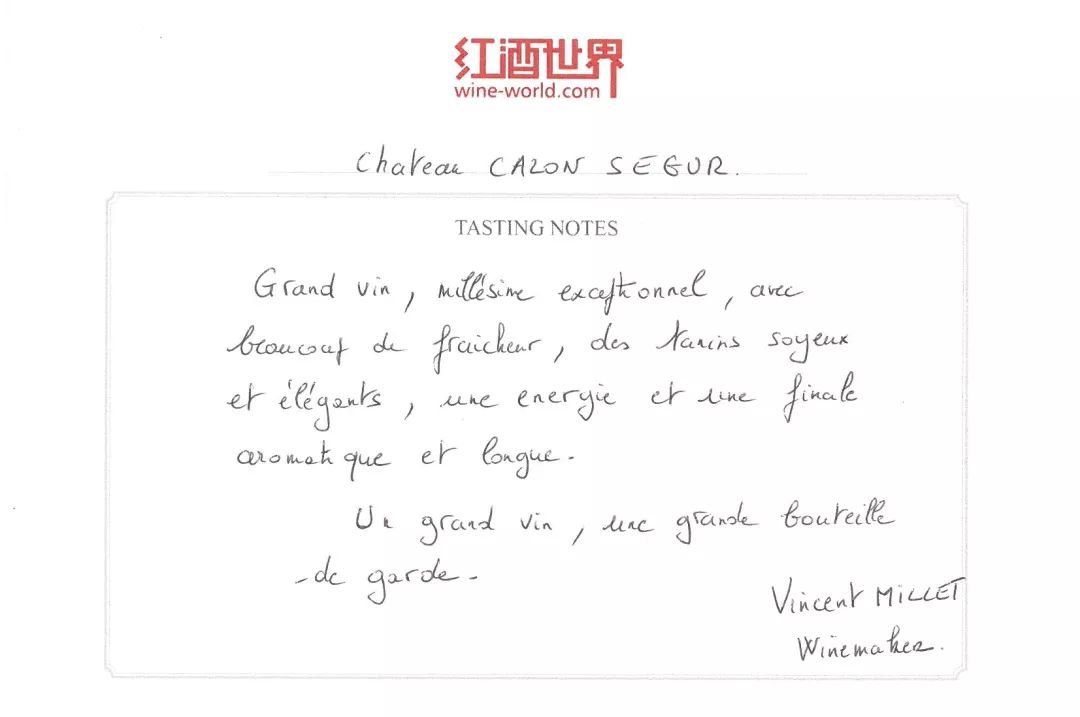 红酒世界
wine-world.com
Chateau CALON SEGUR.
TASTING NOTES
Grand vin, millésime exceptionnel, avec
beaucoup de fraicheur, des tanins soyeux
et élégants, une energie et une finale
aromatique et longue.
Un grand vin, une grande bouteille
-de garde-
Vincent MILLET
Winemaker.